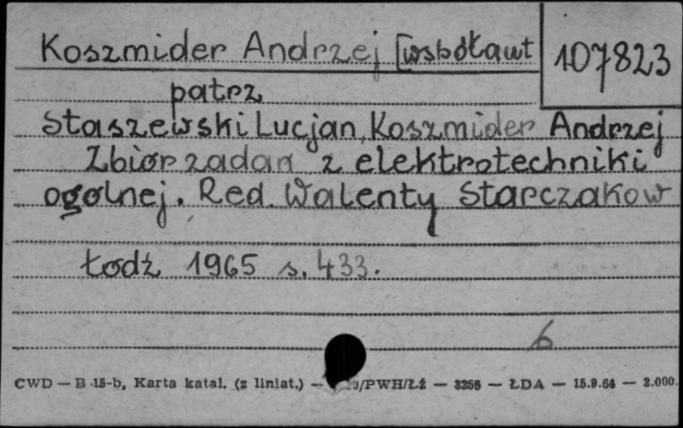 Koszmider Andrzej [współawt
107823
patrz
Staszewski Lucjan, Koszmider Andrzej
Zbiór zadań z elektrotechniki
ogólnej. Red. Walenty Starczakow
Łódź 1965 s. 433.
6
CWD — B-15-b, Karta katal. (z liniat.) — /PWH/Łź — 3256 — ŁDA — 15.9.64 — 2.000.